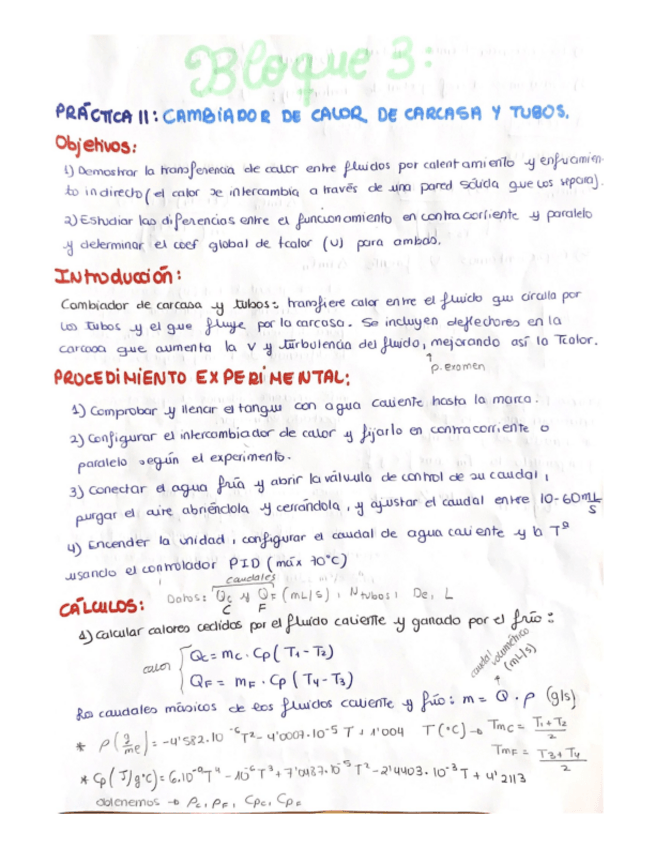 Bloque 3:
PRÁCTICA 11: CAMBIADOR DE CALOR DE CARCASA Y TUBOS.
Objetivos:
1) Demostrar la transferencia de calor entre fluidos por calentamiento y enfriamien
to indirecto (el calor se intercambia a través de una pared sólida que los separa).
2) Estudiar las diferencias entre el funcionamiento en contracorriente y paralelo
y determinar el coef global de tcalor (U) para ambas.
Introducción:
Cambiador de carcasa y tubos: transfiere calor entre el fluido que circula por
los tubos y el que fluye por la carcasa. Se incluyen deflectores en la
carcasa que aumenta la v y turbulencia del fluido, mejorando así la Tcalor.
↑
p. examen
PROCEDIMIENTO EXPERIMENTAL:
1) Comprobar y llenar el tanque con agua caliente hasta la marca.
2) Configurar el intercambiador de calor y fijarlo en contracorriente o
paralelo según el experimento.
3) Conectar el agua fría y abrir la válvula de control de su caudal,
purgar el aire abriéndola y cerrándola, y ajustar el caudal entre 10-60 mL/s
4) Encender la unidad, configurar el caudal de agua caliente y la Tª
usando el controlador PID (máx 70°C)
caudales
CÁLCULOS: Datos: Qc y QF (mL/s), Ntubos, De, L
C F
1) Calcular calores cedidos por el fluido caliente y ganado por el frío:
calor { Qc = mc · Cp (T1 - T2)
QF = mF · Cp (T4 - T3)
caudal volumétrico (mL/s)
↑
Los caudales másicos de los fluidos caliente y frío: m = Q · ρ (g/s)
* ρ (g/mL) = -4'582·10⁻⁶T² - 4'0007·10⁻⁵ T + 1'004 T(°C) → Tmc = (T1+T2)/2
TmF = (T3+T4)/2
* Cp (J/g°C) = 6·10⁻⁹T⁴ - 10⁻⁶T³ + 7'0487·10⁻⁵ T² - 2'4403·10⁻³ T + 4'2113
obtenemos → ρc, ρF, Cpc, CpF